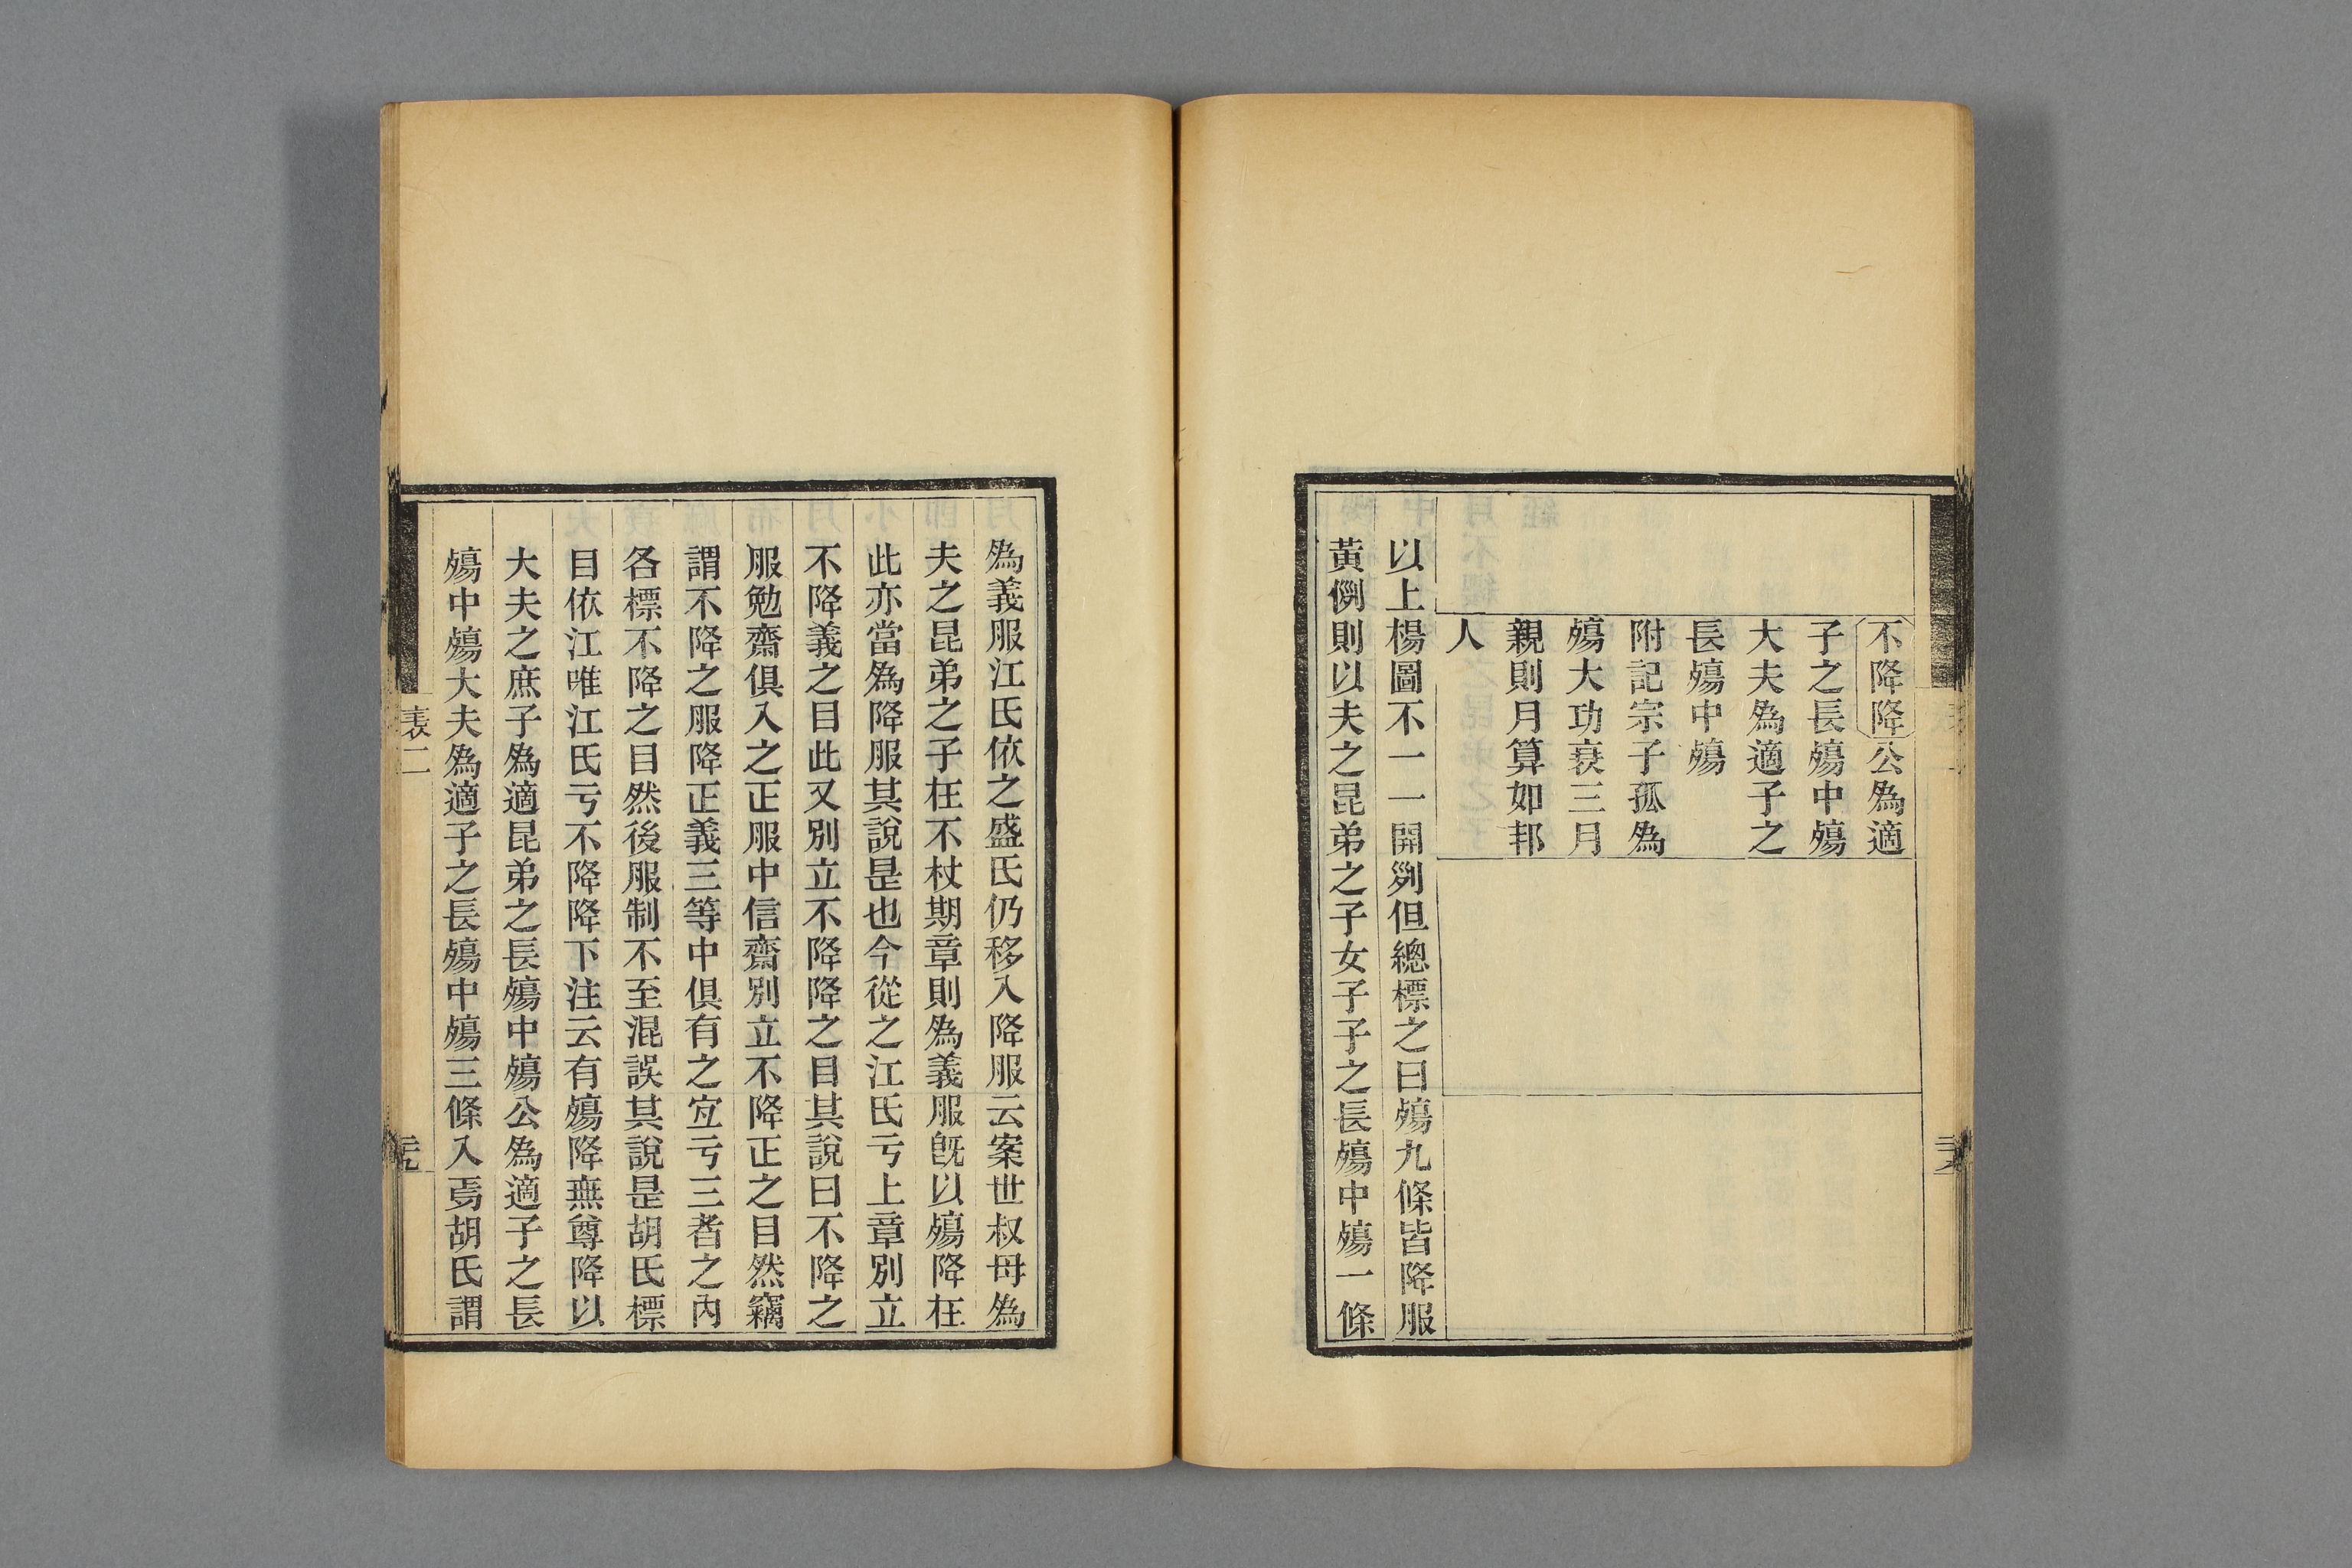 不降降公為適
子之長殤中殤
大夫為適子之
長殤中殤
附記宗子孤為
殤大功衰三月
親則月算如邦
人
以上楊圖不一一開列但總標之曰殤九條皆降服
黃例則以夫之昆弟之子女子子之長殤中殤一條
為義服江氏依之盛氏仍移入降服云案世叔母為
夫之昆弟之子在不杖期章則為義服旣以殤降在
此亦當為降服其說是也今從之江氏亏上章別立
不降義之目此又別立不降降之目其說曰不降之
服勉齋俱入之正服中信齋別立不降正之目然竊
謂不降之服降正義三等中俱有之宐亏三者之內
各標不降之目然後服制不至混誤其說是胡氏標
目依江唯江氏亏不降降下注云有殤降無尊降以
大夫之庶子為適昆弟之長殤中殤公為適子之長
殤中殤大夫為適子之長殤中殤三條入焉胡氏謂
表二